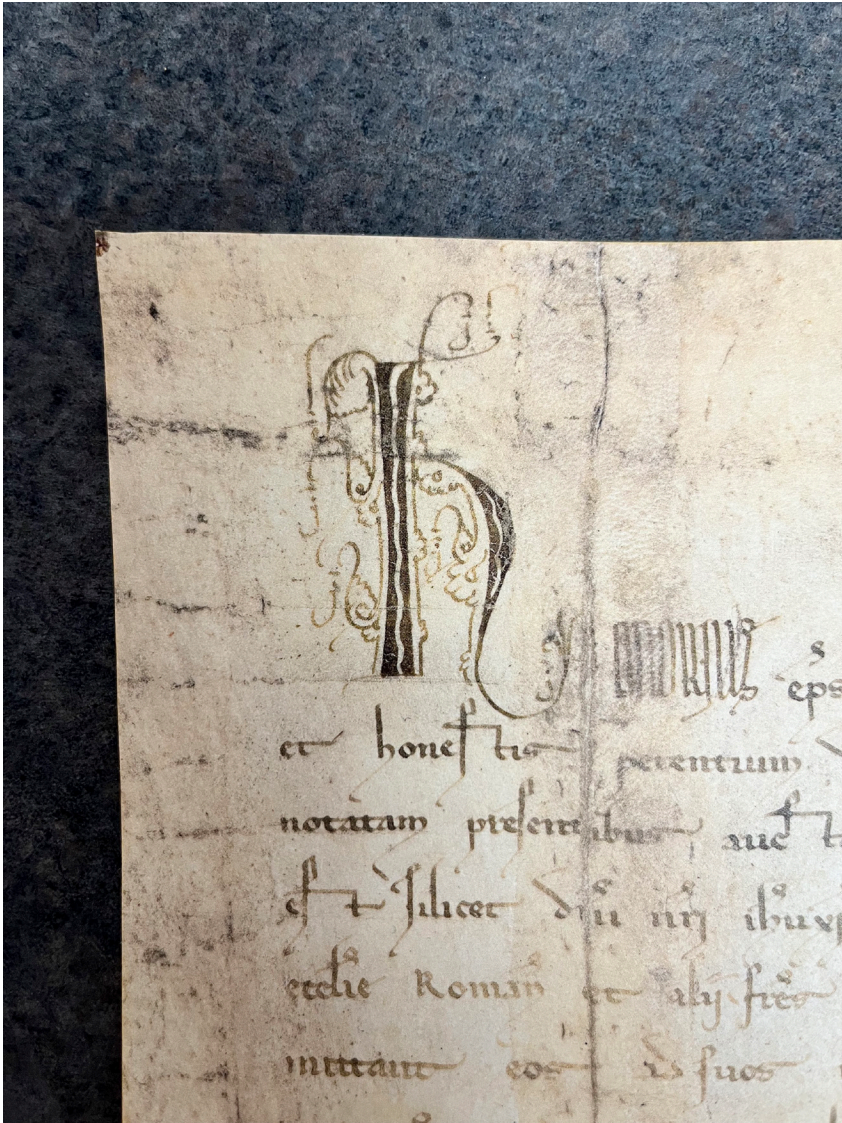 honorius eps
et honestis petentium
notatam presentibus auct
est silicet dni nri ihu xp
ecclie Roman et alij fres
mittant eos ad suos